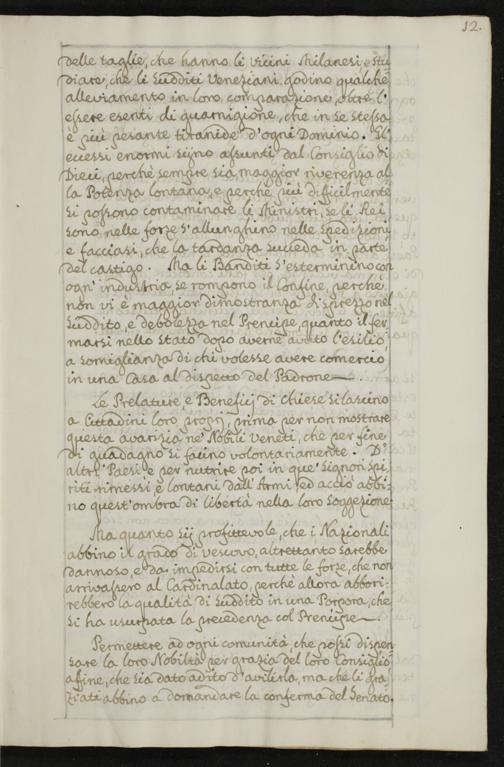 12.
delle taglie, che hanno li vicini Milanesi, e stu
diare, che li Sudditi Veneziani godino qualche
alleviamento in loro comparazione, oltre l'
essere esenti di guarnigione, che in se stessa
è più pesante tiranide d'ogni Dominio. Gl'
ecessi enormi sijno assunti dal Consiglio di
Dieci, perchè sempre sia maggior riverenza al
la Potenza lontana, e perchè più difficilmente
si possono contaminare li Ministri, se li Rei
sono nelle forze s'allunghino nelle spedizioni
e facciasi, che la tardanza succeda in parte
del castigo. Ma li Banditi s'esterminino con
ogn' industria se rompono il Confine, perchè
non vi è maggior dimostranza di sprezzo nel
Suddito, e debolezza nel Prencipe, quanto il fer
marsi nello stato dopo averne avuto l'esilio
a somiglianza di chi volesse avere comercio
in una Casa al dispetto del Padrone.
Le Prelature, e Beneficij di chiese si lascino
a Cittadini loro proprj, prima per non mostrare
questa avarizia ne' Nobili Veneti, che per fine
di guadagno si faccino volontariamente. D'
altri Paesi, e per nutrire poi in que' Signori spi
riti rimessi, e lontani dall'Armi, ed acciò abbi
no quest'ombra di libertà nella loro soggezione.
Ma quanto sij profittevole, che i Nazionali
abbino il grado di vescovo, altrettanto sarebbe
dannoso, e da impedirsi con tutte le forze, che non
arrivassero al Cardinalato, perchè allora abbori-
rebbero la qualità di Suddito in una Porpora, che
si ha usurpata la precedenza col Prencipe.
Permettere ad ogni comunità, che possi dispen
sare la loro Nobiltà per grazia del loro Consiglio
affine, che sia dato adito d'avilirla, ma che li gra
ziati abbino a domandare la conferma del Senato.